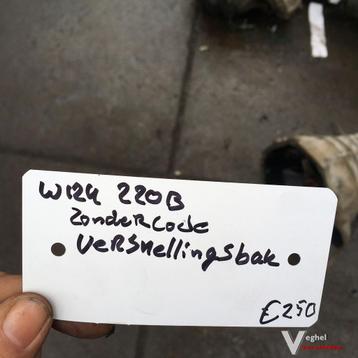 W124 220B
Zonder Code
Versnellingsbak
€250
Veghel